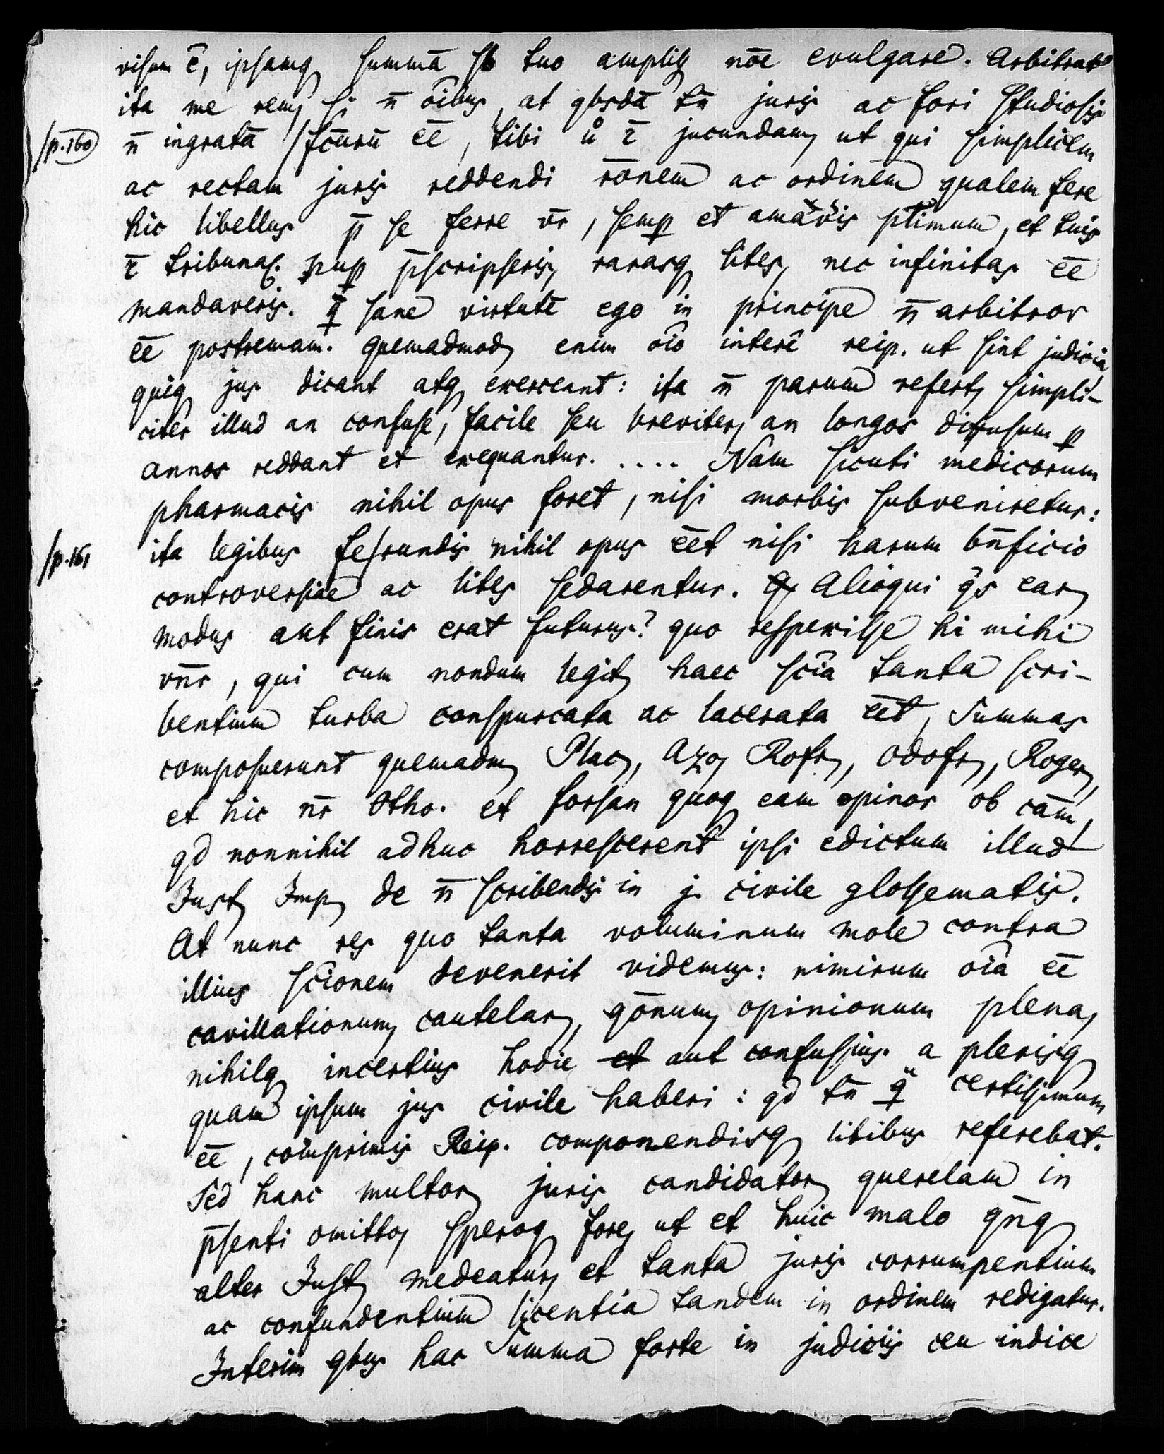 visum ē, ipsamq summā sb tuo ampliss nōe evulgare. Arbitrat
ita me rem si n̄ ōibus, at qbsdā tn̄ juris ac fori studiosis
/p.160 n̄ ingratā /fcūrū ēē, tibi ů ē jucundam, ut qui simplicem
ac rectam juris reddendi rōnem ac ordinem qualem fere
hic libellus p̄ se ferre vr̄, semp et amāvis ptimum, et tuis
ī tribunal. nup p̄scripseris, rarasq lites, nec infinitas ēē
mandaveris. q̄ sane virtutē ego in principe n̄ arbitror
ēē postremam. quemadmod enim oīo interē reip. ut sint judicia
quiq jus dicant atq exerceant: ita n̄ parum refert, simpli-
citer illud an confuse, facile seu breviter, an longos diffusum p
annos reddant et exequantur. .... Nam sicuti medicorum
pharmacis nihil opus foret, nisi morbis subveniretur:
/p.161 ita legibus fe/rundis nihil opus ēēt nisi harum bn̄ficio
controversiae ac lites sedarentur. Alioqui q̄s ear
modus aut finis erat futurus? quo respexisse hi mihi
vn̄r, qui cum nondum legit haec scīa tanta scri-
bentium turba conspurcata ac lacerata ēēt, Summas
composuerunt quemadm Plac, Azo, Rofr, Odofr, Roger,
et hic nr̄ Otho. et forsan quoq eam opinor ob cām,
qd nonnihil adhuc horrescerent ipsi edictum illud
Just Imp de n̄ scribendis in j. civile glossematis.
At nunc res quo tanta voluminum mole contra
illius sc̄ionem devenerit videmus: nimirum oīa ēē
cavillationum cautelar, qōnum opinionum plena,
nihilq incertius hodie et aut confusius a plerisq
quam ipsum jus civile haberi: qd tn̄ q̈ certissimum
ēē, comprimis Reip. componendisq litibus referebat.
Sed hanc multor juris candidator querelam in
p̄senti omitto, speroq fore ut et huic malo qn̄q
alter Just medeatur, et tanta juris corrumpentium
ac confundentium licentia tandem in ordinem redigatur.
Interim qbus hac Summa forte in judiciis ceu indice